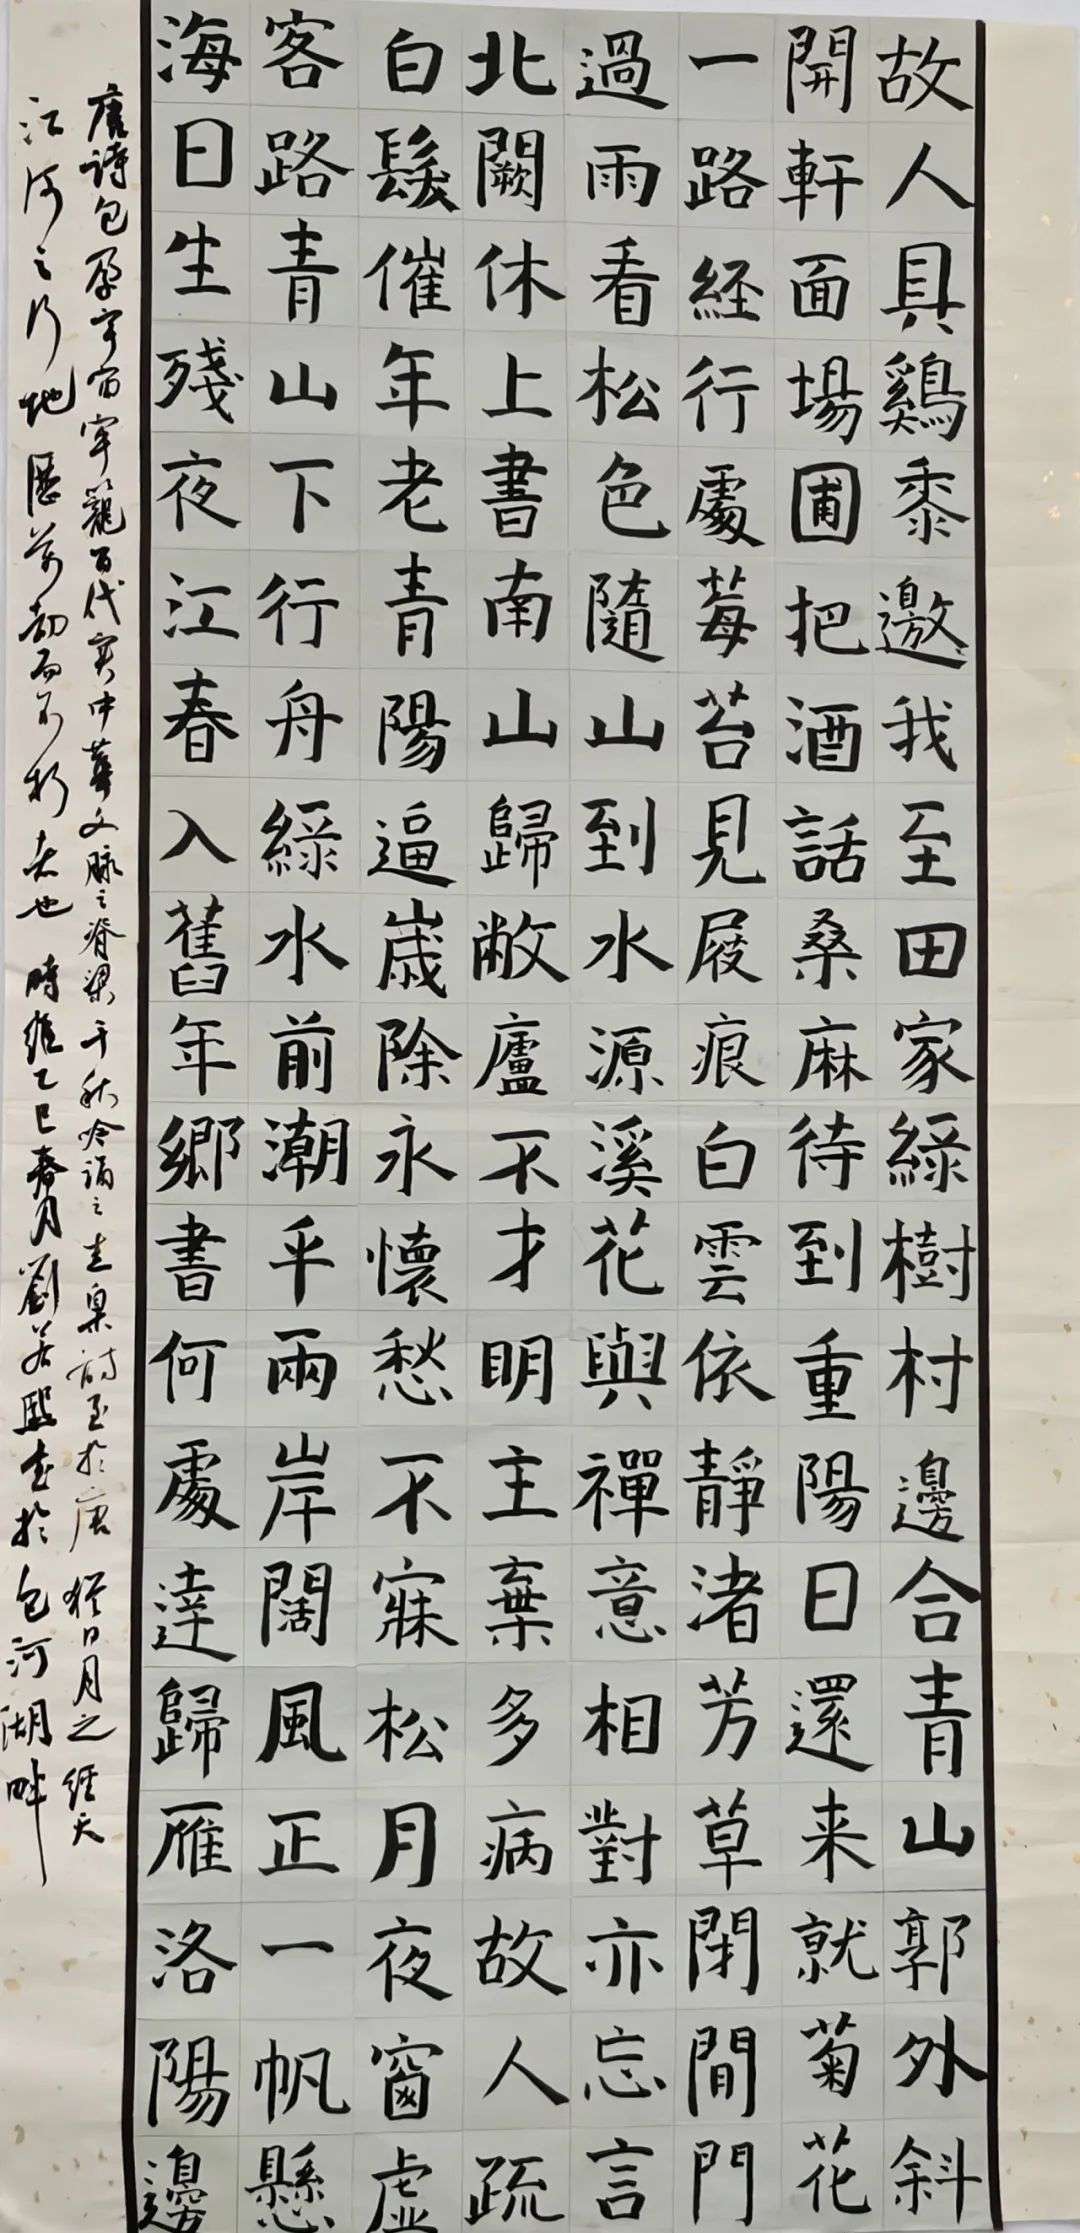 故人具鷄黍邀我至田家綠樹村邊合青山郭外斜
開軒面場圃把酒話桑麻待到重陽日還来就菊花
一路経行處莓苔見屐痕白雲依靜渚芳草閉閒門
過雨看松色隨山到水源溪花與禪意相對亦忘言
北闕休上書南山歸敝廬不才明主棄多病故人疏
白髮催年老青陽逼歲除永懷愁不寐松月夜窗虛
客路青山下行舟綠水前潮平兩岸闊風正一帆懸
海日生殘夜江春入舊年鄉書何處達歸雁洛陽邊
唐詩包孕宇宙牢籠百代实中華文脉之脊梁千秋吟誦之圭臬詩至於唐猶日月之經天
江河之行地歷萬劫而不朽者也時維乙巳春月劉若熙書於包河湖畔